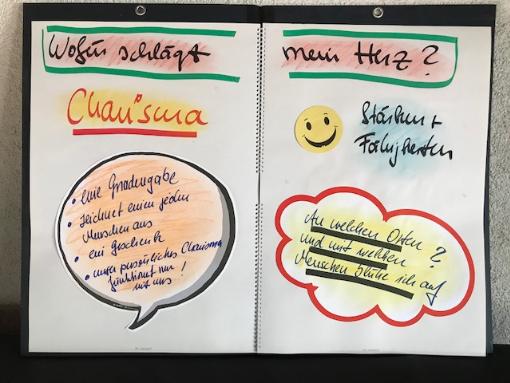 Wofür schlägt
mein Herz?
Charisma
• eine Gnadengabe
• zeichnet einen jeden
Menschen aus
• ein Geschenk
• unser persönliches Charisma
funktioniert nur
mit uns!
Stärken +
Fähigkeiten
An welchen Orten
und mit welchen ?
Menschen blühe ich auf